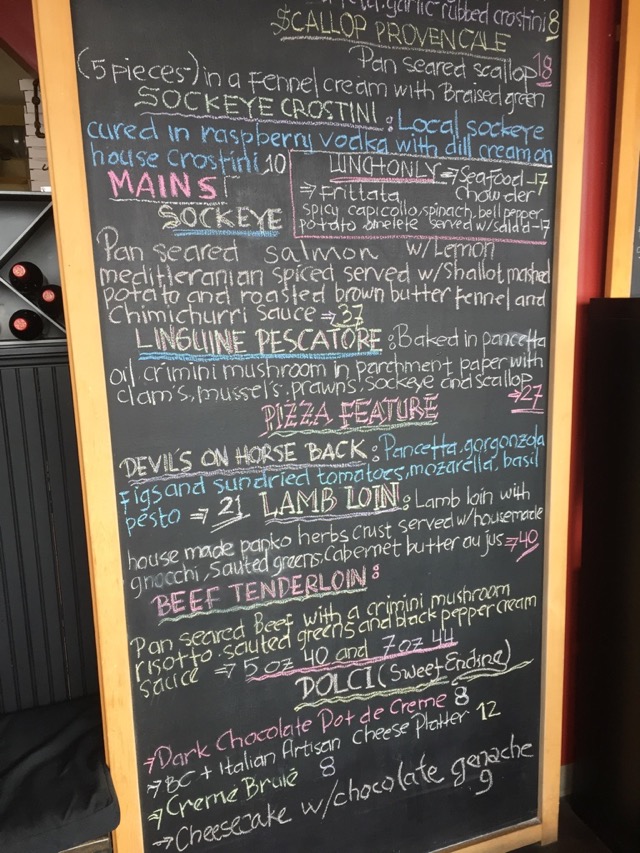 garlic rubbed crostini 8
SCALLOP PROVENCALE
Pan seared scallop 18
(5 pieces) in a Fennel cream with Braised green
SOCKEYE CROSTINI : Local sockeye
cured in raspberry vodka with dill cream on
house crostini 10
LUNCH ONLY → Seafood -17
Chowder
⇒ Frittata
spicy capicollo, spinach, bell pepper
potato omelete served w/salad -17
MAINS!
SOCKEYE
Pan seared salmon w/Lemon
mediteranian spiced served w/Shallot mashed
potato and roasted brown butter fennel and
Chimichurri Sauce ⇒ 37
LINGUINE PESCATORE : Baked in pancetta
oil crimini mushroom in parchment paper with
clam's, mussel's, prawns, sockeye and scallop
⇒ 27
PIZZA FEATURE
DEVIL'S ON HORSE BACK : Pancetta, gorgonzola
Figs and sundried tomatoes, mozarella, basil
pesto ⇒ 21
LAMB LOIN : Lamb loin with
house made panko herbs crust served w/housemade
gnocchi, Sauted greens, Cabernet butter au jus ⇒ 40
BEEF TENDERLOIN :
Pan seared Beef with a crimini mushroom
risotto, sauted greens and black pepper cream
sauce ⇒ 5 oz 40 and 7 oz 44
DOLCI (Sweet Ending)
→ Dark Chocolate Pot de Creme 8
→ BC + Italian Artisan Cheese Platter 12
→ Creme Brulé 8
→ Cheesecake w/chocolate genache
9